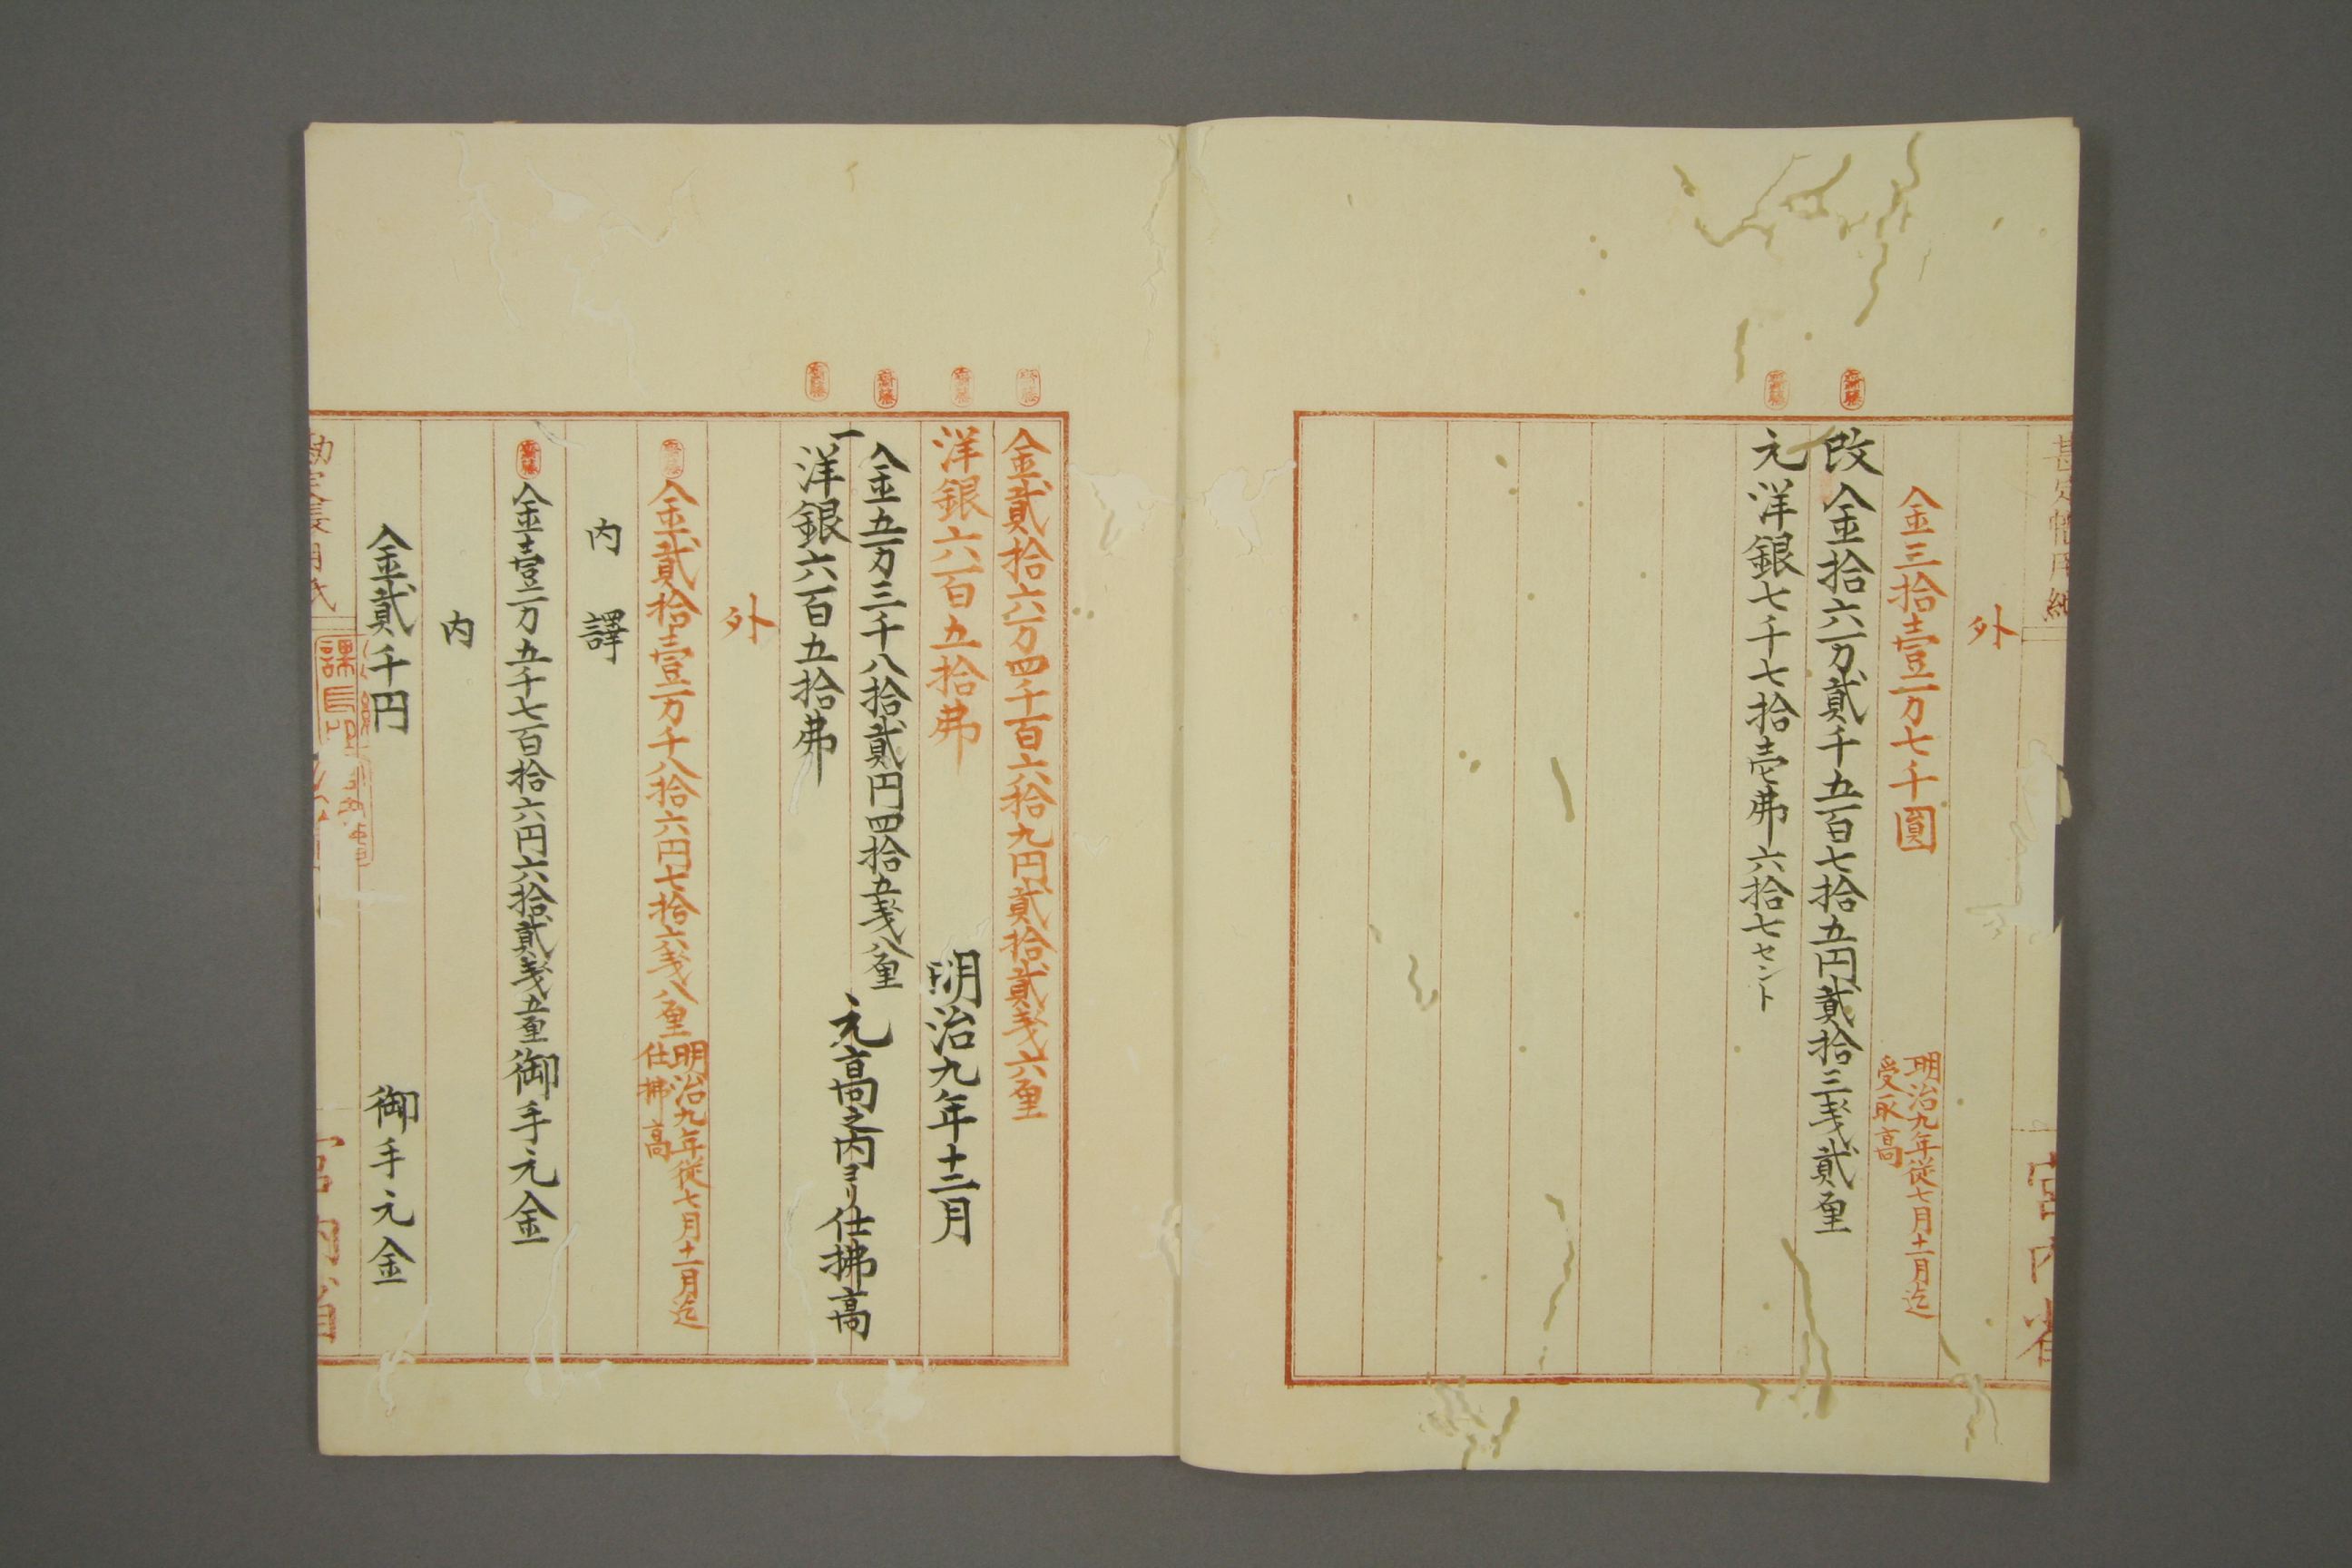 外
金三拾壹万七千圓 明治九年従七月十二月迄
受取高
改 金拾六万貳千五百七拾五円貳拾三銭貳厘
元 洋銀七千七拾壱弗六拾七セント
宮内省
金貳拾六万四千百六拾九円貳拾貳銭六厘
洋銀六百五拾弗 明治九年十二月
金五万三千八拾貳円四拾五銭八厘
一 洋銀六百五拾弗 元高之内ヨリ仕拂高
外
金貳拾壹万千八拾六円七拾六銭八厘 明治九年従七月十二月迄
仕拂高
内譯
金壹万五千七百拾六円六拾貳銭五厘 御手元金
内
金貳千円 御手元金
宮内省